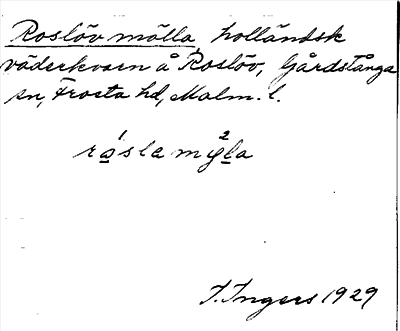 Roslöv mölla, holländsk
väderkvarn å Roslöv, Gårdstånga
sn, Frosta hd, Malm. l.
rosle myla
I. Ingers 1929